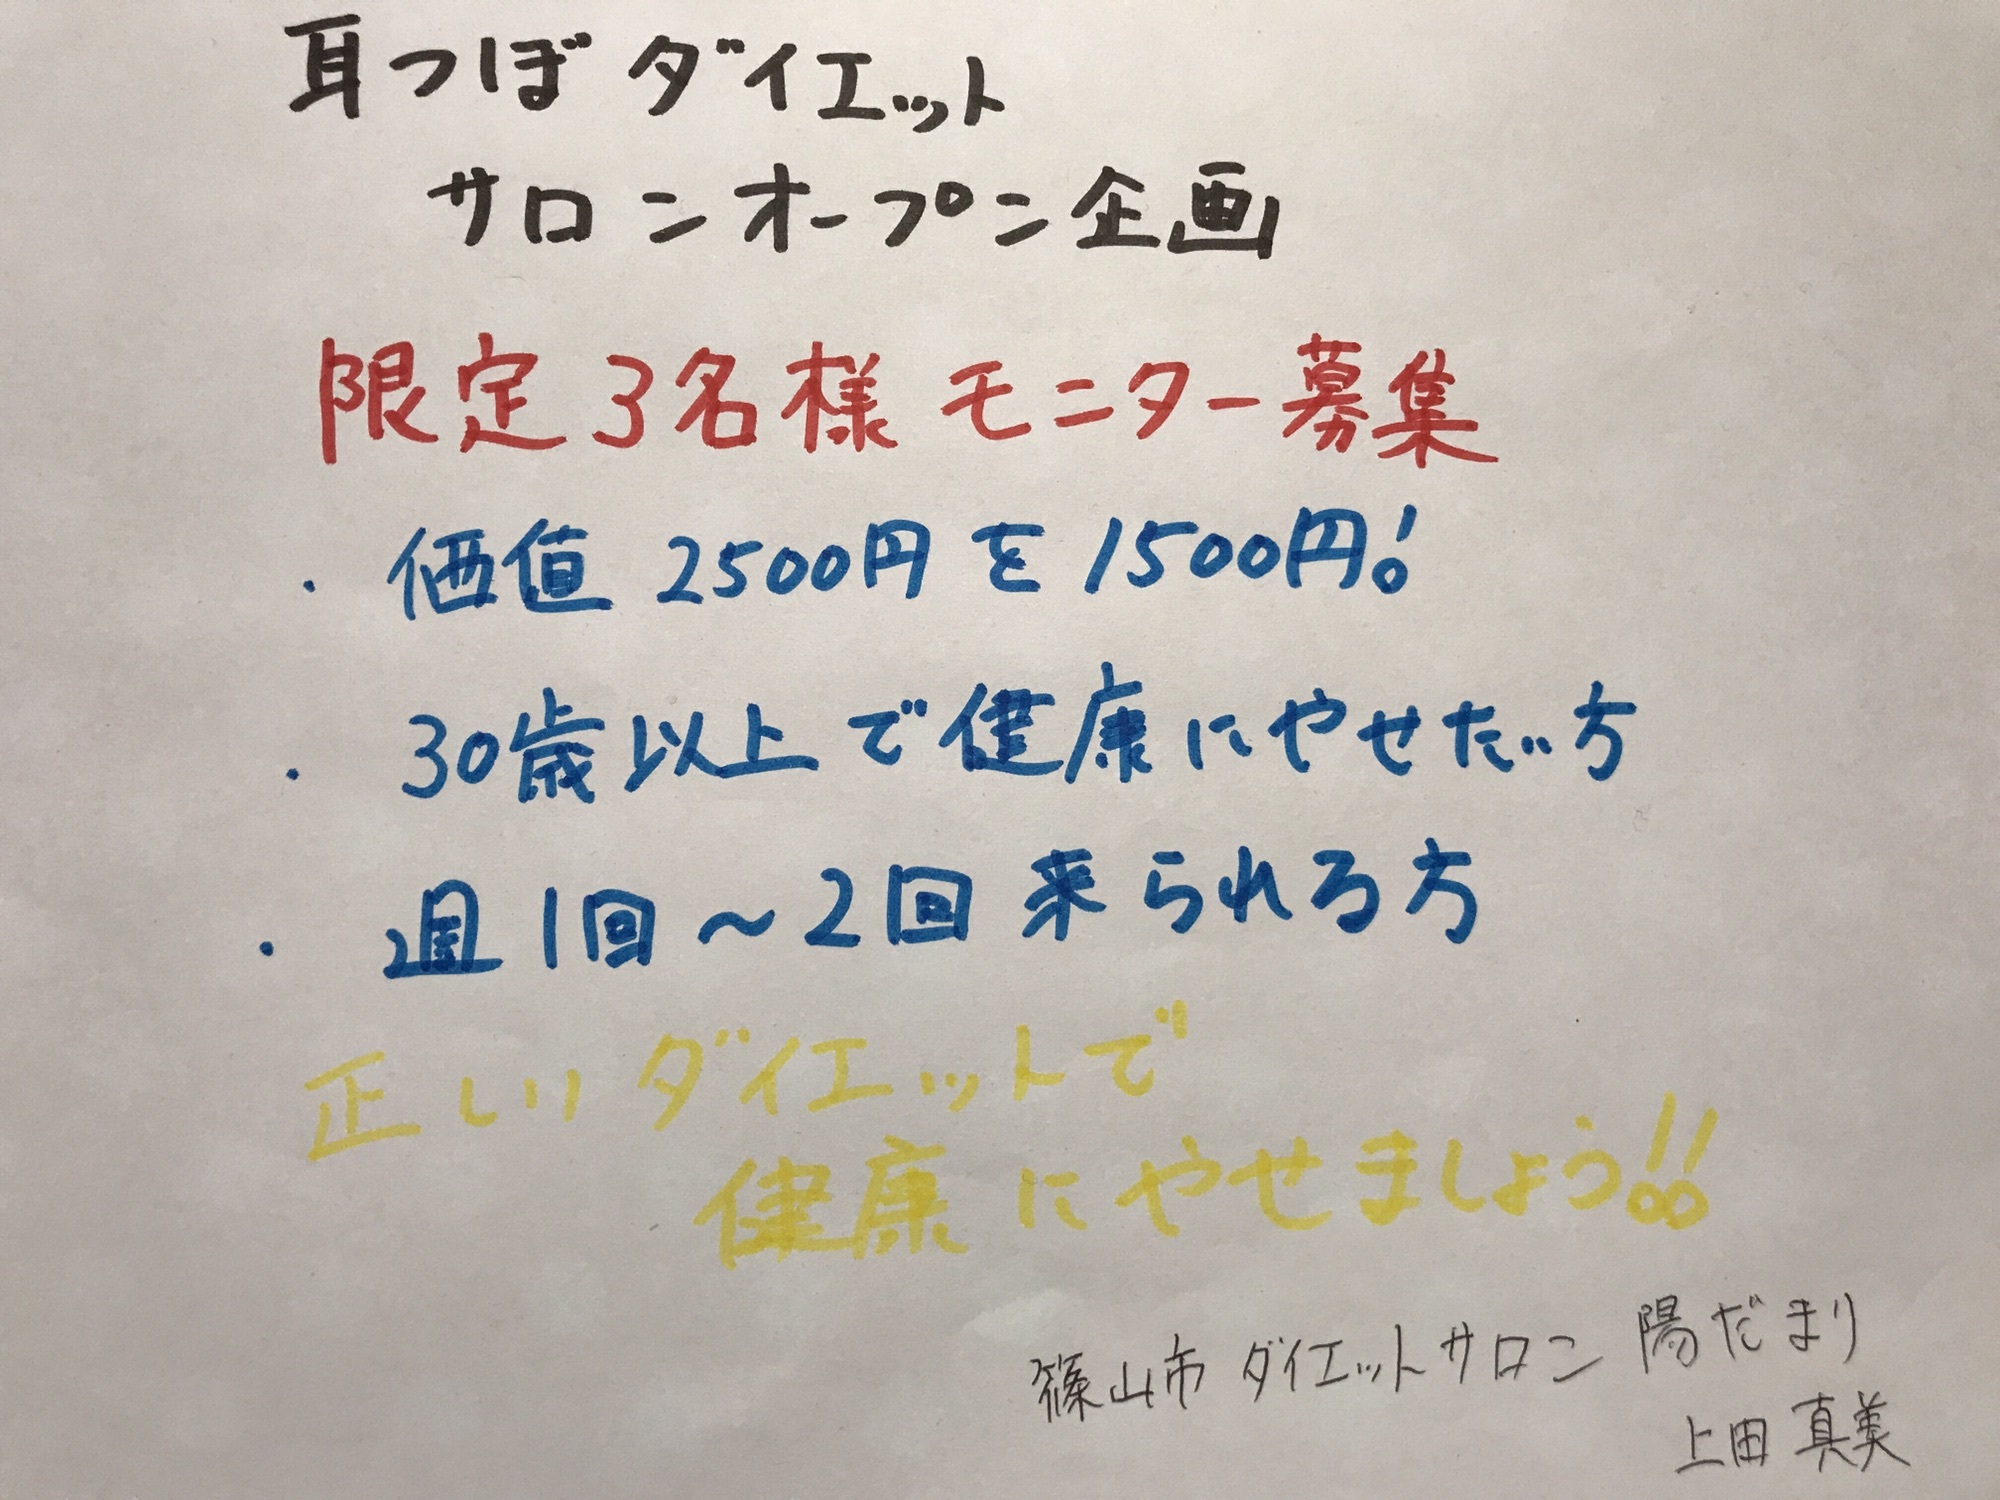 耳つぼダイエット
サロンオープン企画
限定3名様モニター募集
・価値2500円を1500円!
・30歳以上で健康にやせたい方
・週1回～2回来られる方
正しいダイエットで
健康にやせましょう!!
篠山市ダイエットサロン陽だまり
上田真美